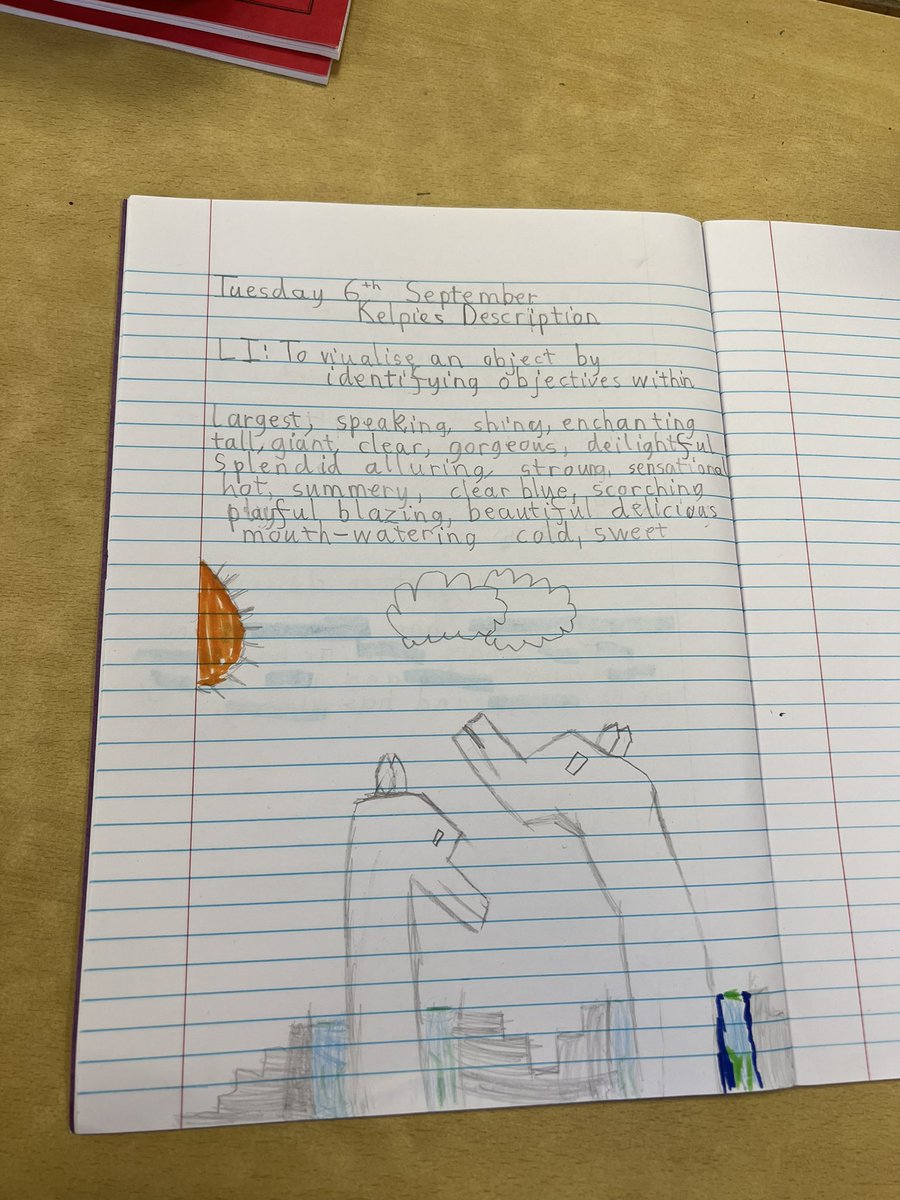 Tuesday 6th September
Kelpies Description
LI: To viualise an object by
identifying objectives within
Largest, speaking, shiny, enchanting
tall, giant, clear, gorgeous, deilightful
Splendid alluring, stroung, sensational
hot, summery, clear blue, scorching
playful, blazing, beautiful delicious
mouth-watering cold, sweet